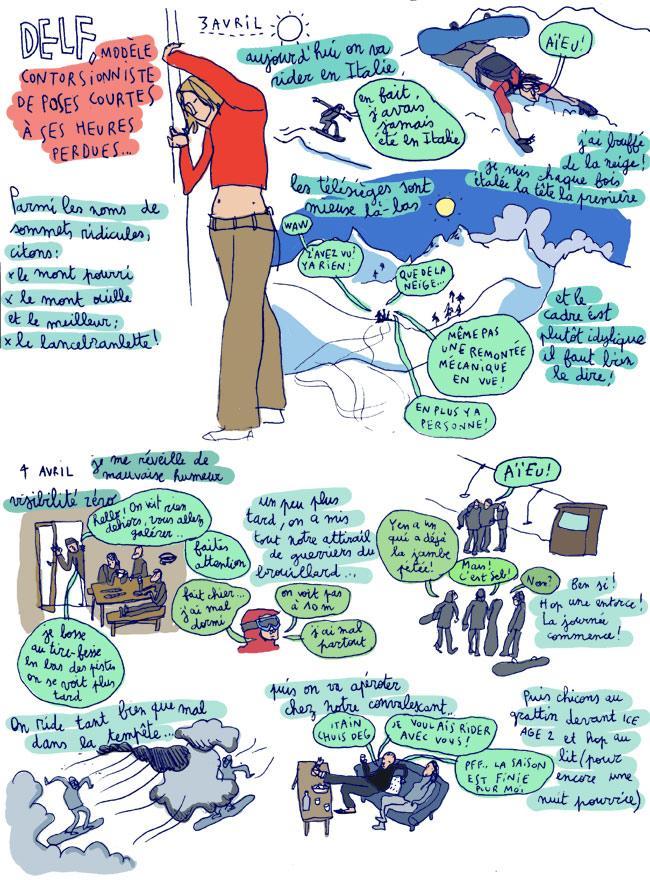 DELF,
MODÈLE
CONTORSIONNISTE
DE POSES COURTES
À SES HEURES
PERDUES...
3 AVRIL
aujourd'hui on va
rider en Italie,
en fait,
j'avais
jamais
été en Italie
AÏEU!
j'ai bouffé
de la neige!
je suis chaque fois
étalée la tête la première
Parmi les noms de
sommets ridicules,
citons:
x le mont pourri
x le mont ouille
et le meilleur:
x le lancebranlette!
les télésièges sont
mieux là-bas
WAW
Z'AVEZ VU!
YA RIEN!
QUE DE LA
NEIGE...
MÊME PAS
UNE REMONTÉE
MÉCANIQUE
EN VUE!
EN PLUS Y A
PERSONNE!
et le
cadre est
plutôt idylique
il faut bien
le dire!
4 AVRIL
je me réveille de
mauvaise humeur
visibilité zéro
hello! On voit rien
dehors, vous allez
galérer...
faites
attention
je bosse
au tire-fesse
en bas des pistes
on se voit plus
tard
un peu plus
tard, on a mis
tout notre attirail
de guerriers du
brouillard...
fait chier...
j'ai mal
dormi
on voit pas
à 10 m
j'ai mal
partout
AÏEU!
Y'en a un
qui a déjà
la jambe
pétée!
Mais!
c'est seb!
Non?
Ben si!
Hop une entorse!
La journée
commence!
On ride tant bien que mal
dans la tempête...
puis on va apéroter
chez notre convalescant..
'TAIN
CHUIS DEG
JE VOULAIS RIDER
AVEC VOUS!
PFF.. LA SAISON
EST FINIE
POUR MOI
Puis chicons au
grattin devant ICE
AGE 2 et Hop au
lit (pour
encore une
nuit pourrie)